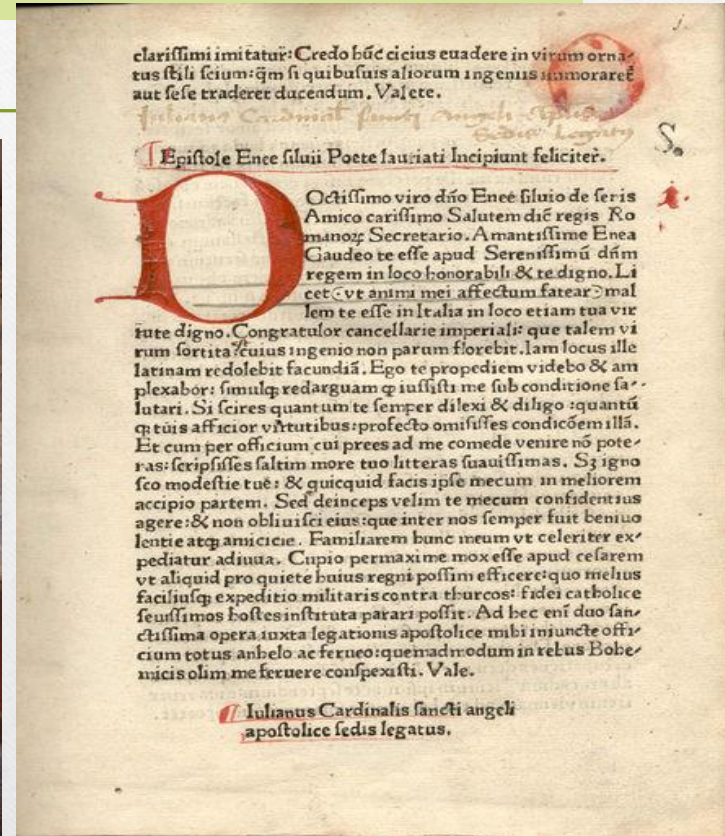 j.
clarissimi imitatur: Credo hūc cicius euadere in virum orna-
tus stili scium: q̄m si quibusuis aliorum ingeniis immoraret̄
aut sese traderet ducendum. Valete.
Iulianus Cardinal Sancti Angeli
Sedis Legatus
S.
Epistole Enee siluii Poete lauriati Incipiunt feliciter.
DOctissimo viro dn̄o Eneę siluio de seris
Amico carissimo Salutem diē regis Ro
manoꝝ Secretario. Amantissime Enea
Gaudeo te esse apud Serenissimū dn̄m
regem in loco honorabili & te digno. Li
cet (vt animi mei affectum fatear) mal
lem te esse in Italia in loco etiam tua vir
tute digno. Congratulor cancellarie imperiali: que talem vi
rum sortita ē cuius ingenio non parum florebit. Iam locus ille
latinam redolebit facundiā. Ego te propediem videbo & am
plexabor: simulqꝫ redarguam ꝙ iussisti me sub conditione sa-
lutari. Si scires quantum te semper dilexi & diligo: quantū
qꝫ tuis afficior virtutibus: profecto omisisses condicōem illā.
Et cum per officium cui prees ad me comede venire nō pote-
ras: scripsisses saltim more tuo litteras suauissimas. Sꝫ igno
sco modestie tue: & quicquid facis ipse mecum in meliorem
accipio partem. Sed deinceps velim te mecum confidentius
agere: & non obliuisci eius: que inter nos semper fuit beniuo
lentie atqꝫ amicicie. Familiarem hunc meum vt celeriter ex-
pediatur adiuua. Cupio permaxime mox esse apud cesarem
vt aliquid pro quiete huius regni possim efficere: quo melius
faciliusqꝫ expeditio militaris contra thurcos: fidei catholice
seuissimos hostes instituta parari possit. Ad hec enī duo san-
ctissima opera iuxta legationis apostolice mihi iniuncte offi-
cium totus anhelo ac ferueo: quemadmodum in rebus Bohe-
micis olim me feruere conspexisti. Vale.
Iulianus Cardinalis sancti angeli
apostolice sedis legatus.